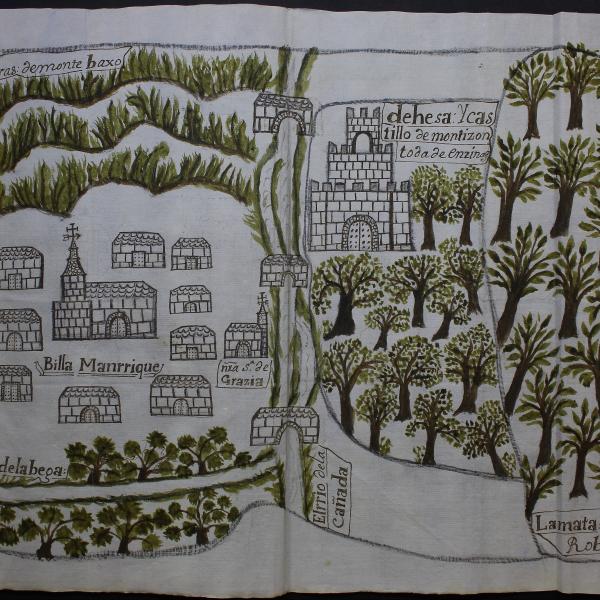 ras: demonte baxo
dehesa: Ycas
tillo de montizon
toda de enzinas
Billa Manrrique
nra sra de
Grazia
delabega:
El rrio dela
Cañada
Lamata
Rob